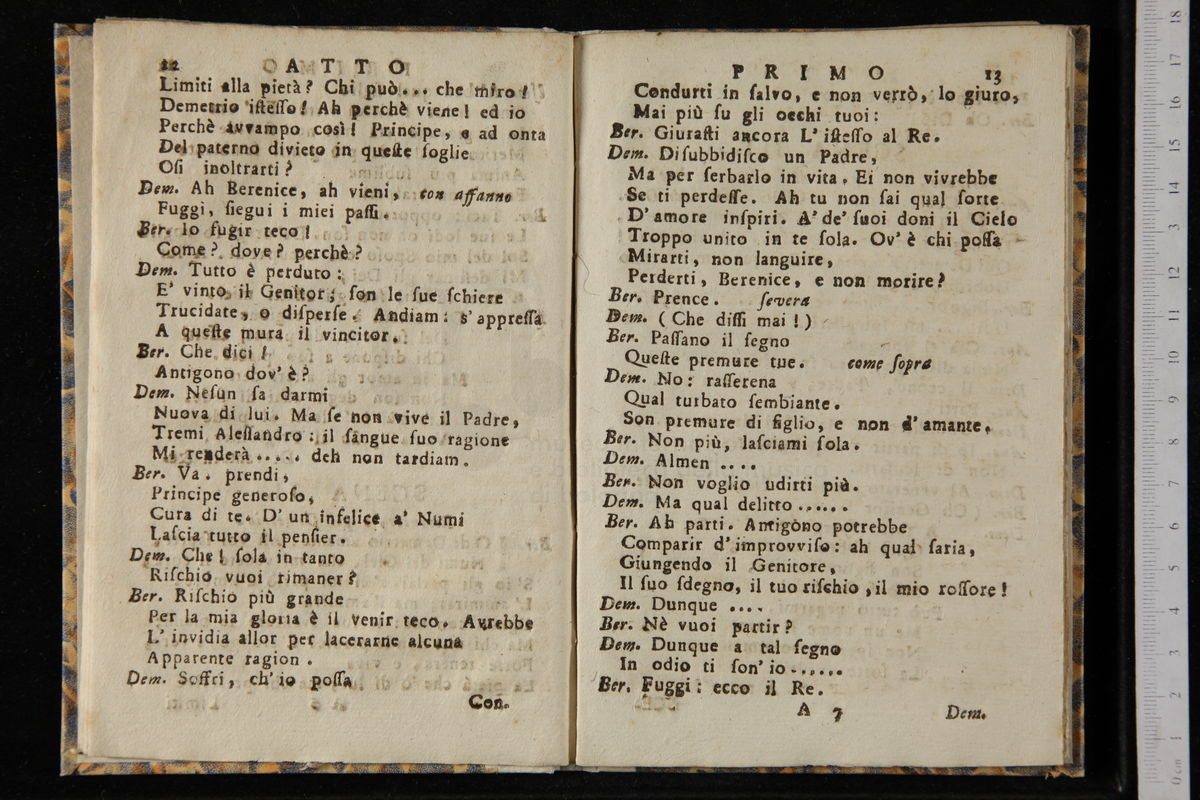 12 ATTO
Limiti alla pietà? Chi può... che miro!
Demetrio iſteſſo! Ah perchè viene! ed io
Perchè avvampo così! Principe, e ad onta
Del paterno divieto in queſte ſoglie
Oſi inoltrarti?
Dem. Ah Berenice, ah vieni, con affanno
Fuggi, ſiegui i miei paſſi.
Ber. Io fugir teco!
Come? dove? perchè?
Dem. Tutto è perduto:
E' vinto il Genitor; ſon le ſue ſchiere
Trucidate, o diſperſe. Andiam: s'appreſſa
A queſte mura il vincitor.
Ber. Che dici!
Antigono dov'è?
Dem. Neſun ſa darmi
Nuova di lui. Ma ſe non vive il Padre,
Tremi Aleſſandro: il ſangue ſuo ragione
Mi renderà..... deh non tardiam.
Ber. Va. prendi,
Principe generoſo,
Cura di te. D'un infelice a' Numi
Laſcia tutto il penſier.
Dem. Che! ſola in tanto
Riſchio vuoi rimaner?
Ber. Riſchio più grande
Per la mia gloria è il venir teco. Avrebbe
L'invidia allor per lacerarne alcuna
Apparente ragion.
Dem. Soffri, ch'io poſſa
Con.
PRIMO 13
Condurti in ſalvo, e non verrò, lo giuro,
Mai più ſu gli occhi tuoi:
Ber. Giuraſti ancora L'iſteſſo al Re.
Dem. Diſubbidiſco un Padre,
Ma per ſerbarlo in vita. Ei non vivrebbe
Se ti perdeſſe. Ah tu non ſai qual ſorte
D'amore inſpiri. A' de' ſuoi doni il Cielo
Troppo unito in te ſola. Ov'è chi poſſa
Mirarti, non languire,
Perderti, Berenice, e non morire?
Ber. Prence. ſevera
Dem. (Che diſſi mai!)
Ber. Paſſano il ſegno
Queſte premure tue. come ſopra
Dem. No: raſſerena
Qual turbato ſembiante.
Son premure di figlio, e non d'amante.
Ber. Non più, laſciami ſola.
Dem. Almen ....
Ber. Non voglio udirti più.
Dem. Ma qual delitto......
Ber. Ah parti. Antigono potrebbe
Comparir d'improvviſo: ah qual ſaria,
Giungendo il Genitore,
Il ſuo ſdegno, il tuo riſchio, il mio roſſore!
Dem. Dunque ....
Ber. Nè vuoi partir?
Dem. Dunque a tal ſegno
In odio ti ſon'io.......
Ber. Fuggi: ecco il Re.
A 7 Dem.